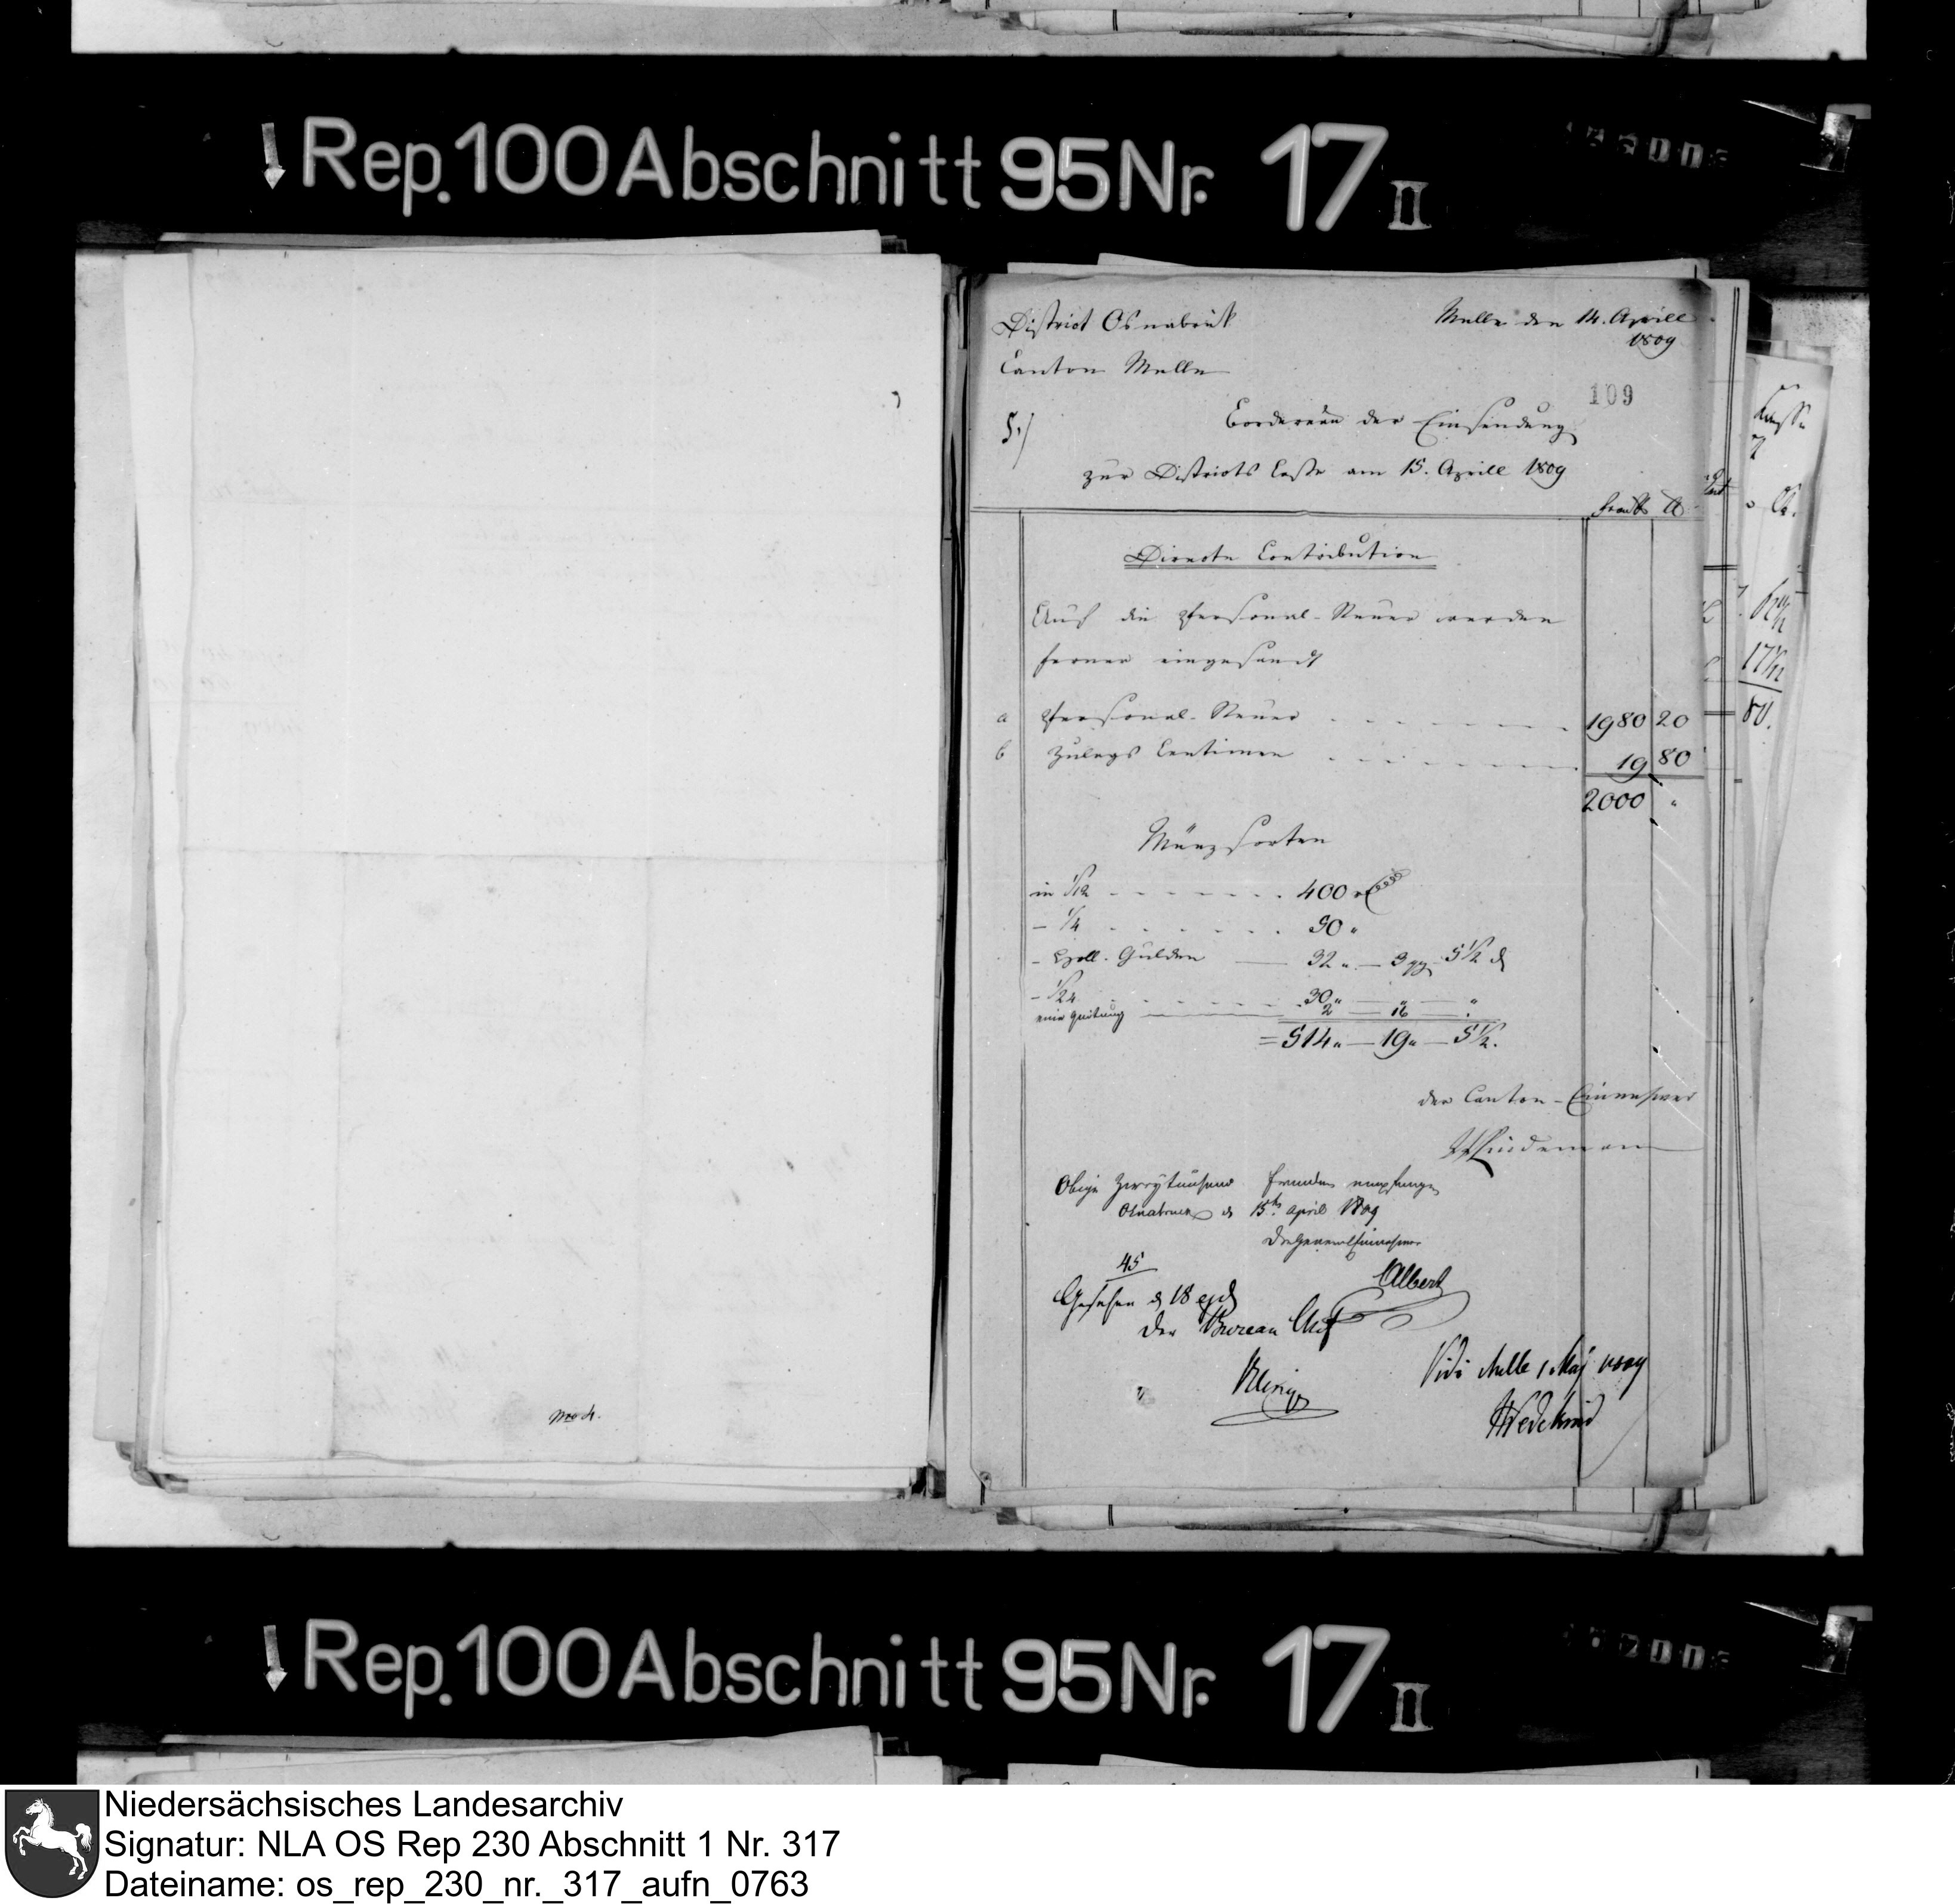 Rep. 100 Abschnitt 95 Nr. 17 II
District Osnabrük
Melle den 14. Aprill
1809
Canton Melle
109
5./
Bordereau der Einsendung
zur Districts Casse am 15. Aprill 1809
Franks Cs
Directe Contribution
Auf die Personal-Steuer werden
ferner eingesandt
a Personal-Steuer 1980 20
b Zulags Centimen 19 80
2000 "
Münzsorten
in 1/12 400
- 1/4 50 "
- Holl. Gulden 32 " - 3 gg 5 1/2 d
- 1/24 30 " - " - "
eine Quitung 2 - 16 - "
= 514 " - 19 " - 5 1/2.
der Canton-Einnehmer
Lindemann
Obige Zweytausend Franken empfangen
Osnabrück d 15ten April 1809
Der General Einnehmer
Albert
45
Gesehen d 18 ejd
Der Bureau Chef
Vidi Melle 1 Maj 1809
Wedekind
No 4.
Rep. 100 Abschnitt 95 Nr. 17 II
Niedersächsisches Landesarchiv
Signatur: NLA OS Rep 230 Abschnitt 1 Nr. 317
Dateiname: os_rep_230_nr._317_aufn_0763